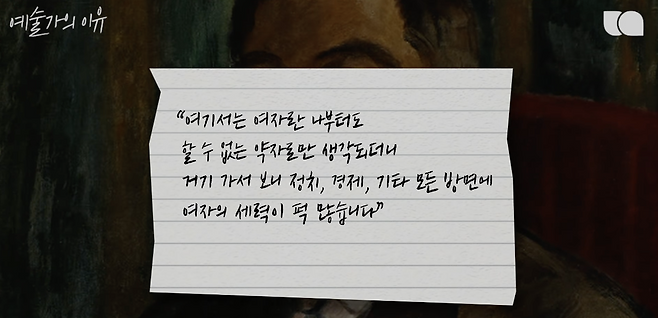 예술가의 이유
“여기서는 여자란 나부터도
할 수 없는 약자로만 생각되더니
거기 가서 보니 정치, 경제, 기타 모든 방면에
여자의 세력이 퍽 많습니다”